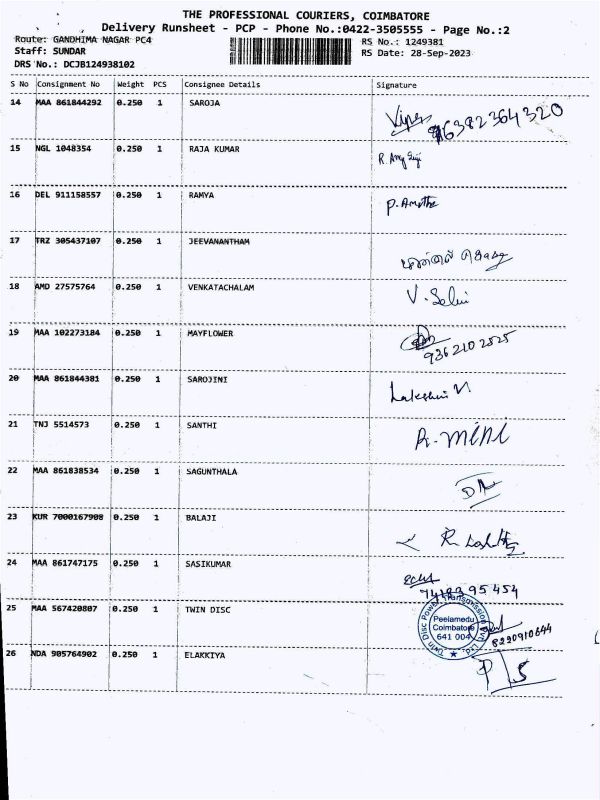 THE PROFESSIONAL COURIERS, COIMBATORE
Delivery Runsheet - PCP - Phone No.:0422-3505555 - Page No.:2
Route: GANDHIMA NAGAR PC4 RS No.: 1249381
Staff: SUNDAR RS Date: 28-Sep-2023
DRS No.: DCJB124938102
S No Consignment No Weight PCS Consignee Details Signature
14 MAA 861844292 0.250 1 SAROJA
96382364320
15 NGL 1048354 0.250 1 RAJA KUMAR
16 DEL 911158557 0.250 1 RAMYA
17 TRZ 305437107 0.250 1 JEEVANANTHAM
18 AMD 27575764 0.250 1 VENKATACHALAM V. Selvi
19 MAA 102273184 0.250 1 MAYFLOWER
9362102525
20 MAA 861844381 0.250 1 SAROJINI Lakshmi N
21 TNJ 5514573 0.250 1 SANTHI R. mini
22 MAA 861838534 0.250 1 SAGUNTHALA
23 KUR 7000167908 0.250 1 BALAJI
24 MAA 861747175 0.250 1 SASIKUMAR
25 MAA 567420807 0.250 1 TWIN DISC
Twin Disc Power Transmission (Pvt) Ltd.
Peelamedu
Coimbatore
641 004
8220910644
26 NDA 905764902 0.250 1 ELAKKIYA